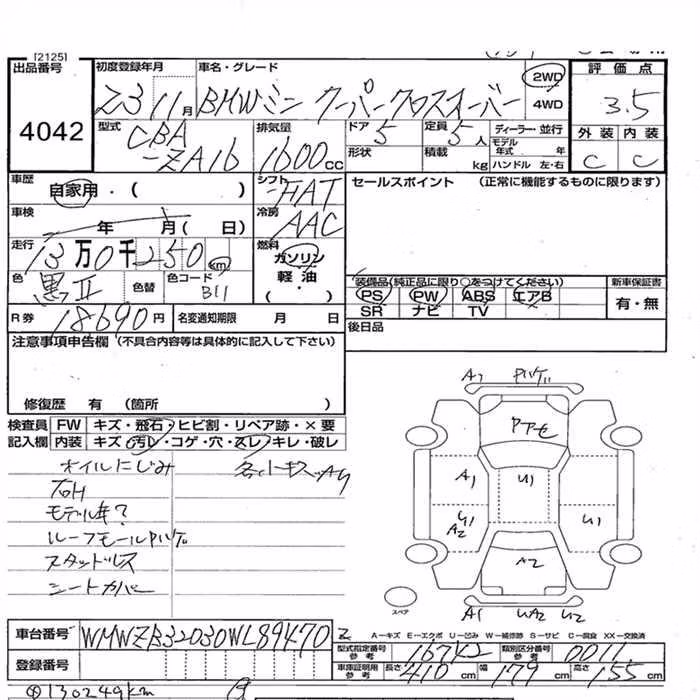 [2125]
出品番号
4042
初度登録年月
23 11月
車名・グレード
BMWミニ クーパークロスオーバー
2WD
4WD
評価点
3.5
外装 内装
C C
型式
CBA
-ZA16
排気量
1600cc
ドア 5
定員 5人
形状
積載 kg
ディーラー・並行
モデル年式 年
ハンドル 左・右
車歴
自家用・( )
シフト
FAT
車検
年 月( 日)
冷房
AAC
走行
13万0千250km
燃料
ガソリン
軽油
( ・ )
色
黒II
色替
色コード
B11
R券 18690円
名変通知期限 月 日
セールスポイント (正常に機能するものに限ります)
装備品(純正品に限り○をつけてください)
新車保証書
PS PW ABS エアB
SR ナビ TV
有・無
後日品
注意事項申告欄 (不具合内容等は具体的に記入して下さい)
修復歴 有 (箇所 )
検査員記入欄
FW キズ・飛石・ヒビ割・リペア跡・×要
内装 キズ・汚レ・コゲ・穴・スレ・キレ・破レ
オイルにじみ
モデル年?
スタッドレス
シートカバー
A1
U1
U1
A2
U1
A2
A1 UA2 U2
スペア
A-キズ E-エクボ U-凹み W-補修跡 S-サビ C-腐食 XX-交換済
車台番号 WMWZB32030WL89470
登録番号
型式指定番号 参考
類別区分番号 参考 0011
車庫証明用 参考 長さ 410cm 幅 179cm 高さ 155cm
130249km